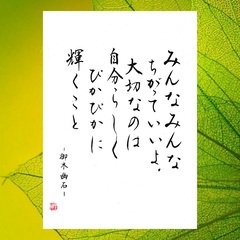 みんなみんな
ちがっていいよ、
大切なのは
自分らしく
ぴかぴかに
輝くこと
－御木幽石－